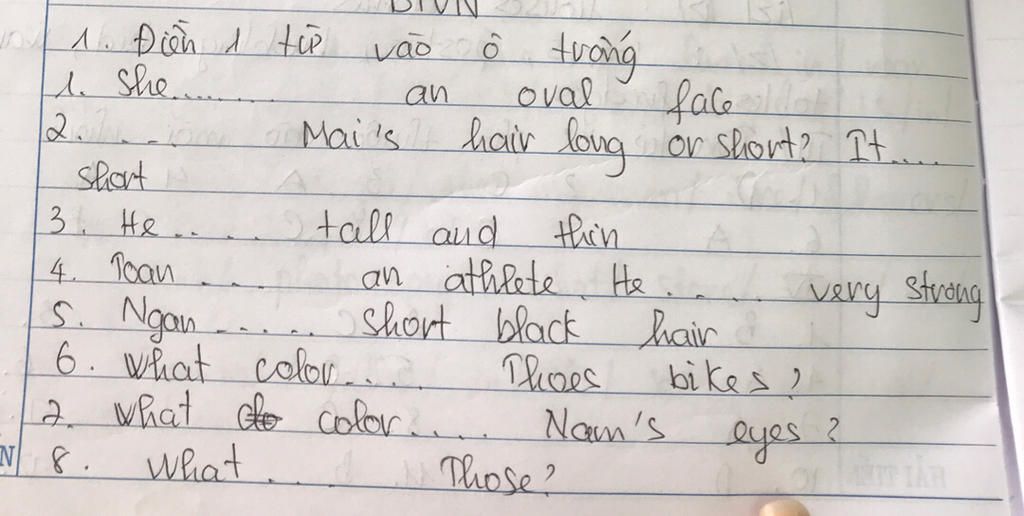 BTVN
1. Điền 1 từ vào ô trống
1. She......... an oval face
2. .... Mai's hair long or short? It....
short
3. He ..... tall and thin
4. Toan ..... an athlete. He ...... very strong
5. Ngan ...... short black hair
6. What color.... Thoes bikes?
7. What color.... Nam's eyes?
N
8. What .... Those?